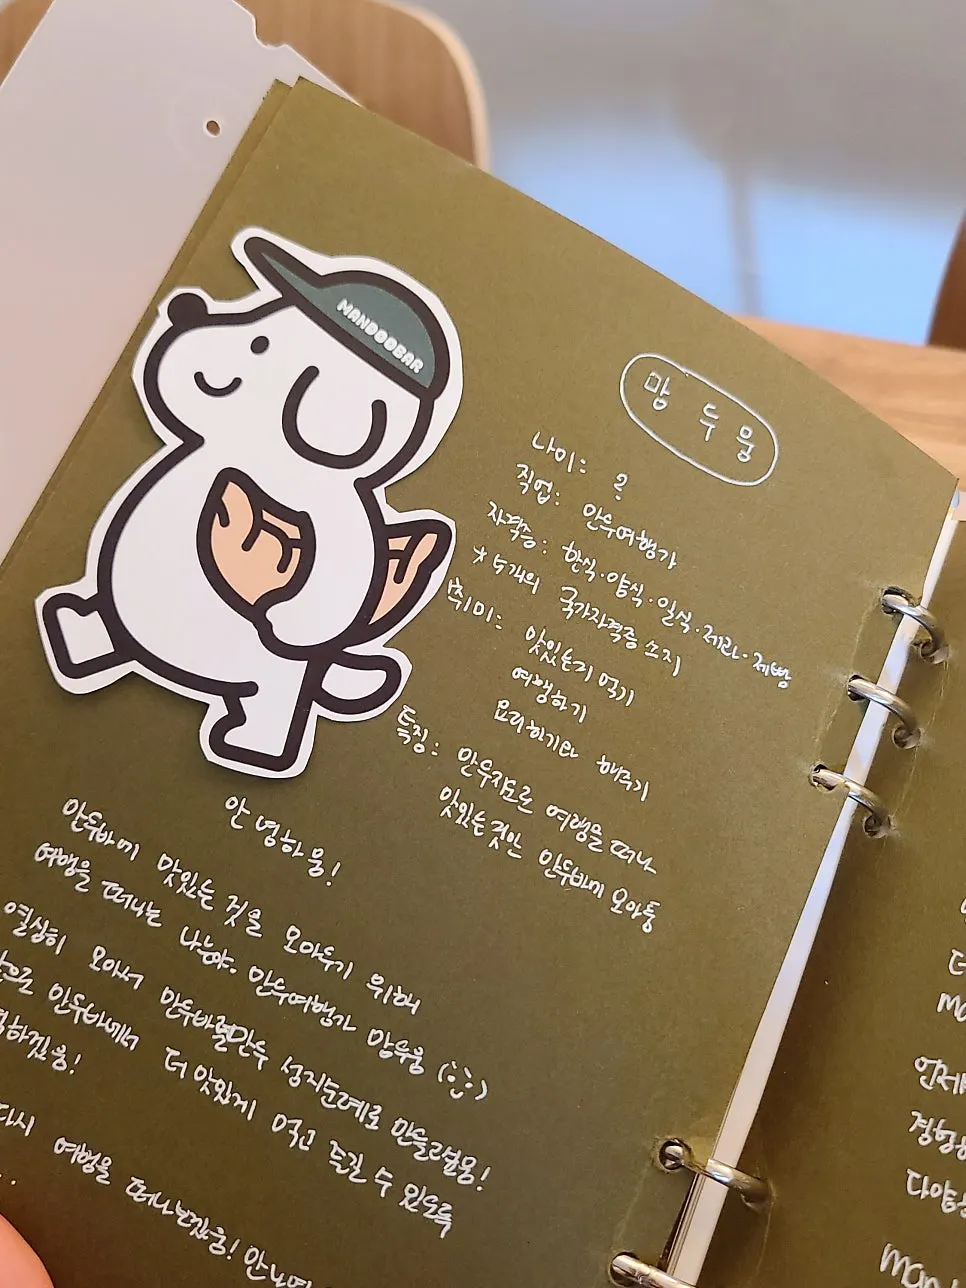 MANDOOBAR
망두움
나이: ?
직업: 만두여행가
자격증: 한식·양식·일식·제과·제빵
* 5개의 국가자격증 소지
취미: 맛있는거 먹기
여행하기
요리하기나 해주기
특징: 만두지도로 여행을 떠나
맛있는 것만 만두바에 모아둠
안녕하움!
만두바에 맛있는 것을 모아두기 위해
여행을 떠나는 나는야. 만두여행가 망두움
열심히 모아서 만두바를 만두 성지순례로 만들려움!
만두바에서 더 맛있게 먹고 즐길 수 있도록
하겠움!
다시 여행을 떠나보겠움!
언제
경험
다양